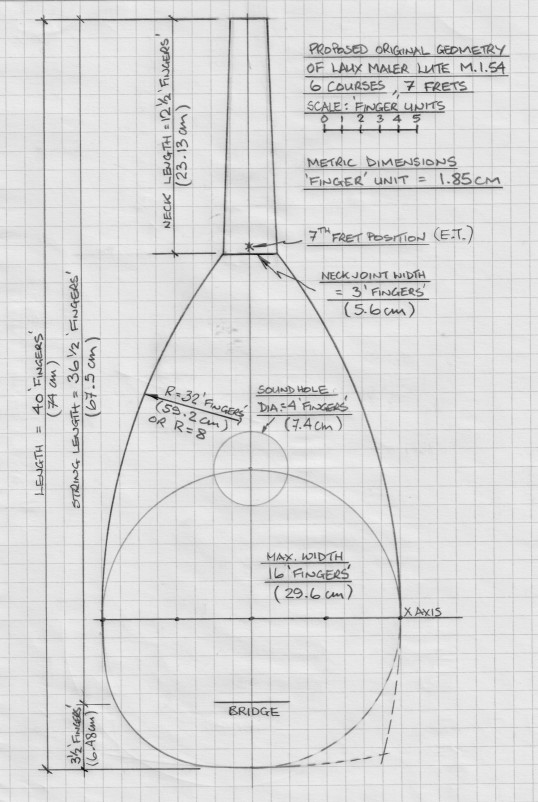 PROPOSED ORIGINAL GEOMETRY
OF LAUX MALER LUTE M.I.54
6 COURSES, 7 FRETS
SCALE: 'FINGER' UNITS
0 1 2 3 4 5
METRIC DIMENSIONS
'FINGER' UNIT = 1.85CM
NECK LENGTH = 12½ 'FINGERS'
(23.13 cm)
7TH FRET POSITION (E.T.)
NECK JOINT WIDTH
= 3 'FINGERS'
(5.6 cm)
LENGTH = 40 'FINGERS'
(74 cm)
STRING LENGTH = 36½ 'FINGERS'
(67.5 cm)
R=32 'FINGERS'
(59.2 cm)
OR R=8
SOUNDHOLE
DIA.=4 'FINGERS'
(7.4 cm)
MAX. WIDTH
16 'FINGERS'
(29.6 cm)
X AXIS
BRIDGE
3½ 'FINGERS'
(6.48cm)